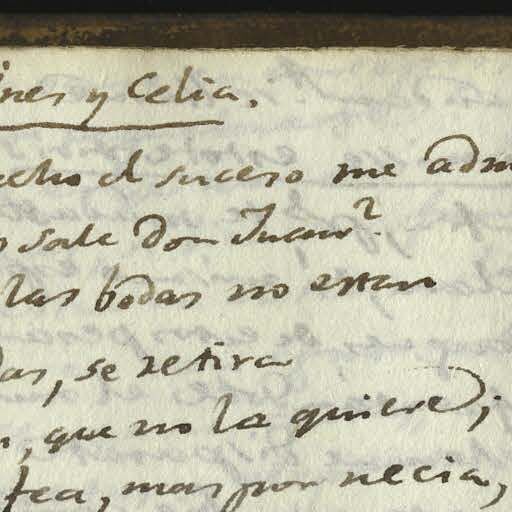 ines y Celia.
echo el suceso me adm
sale don Juan?
las bodas no estan
das, se retira
, que no la quiere;
fea, mas por necia,